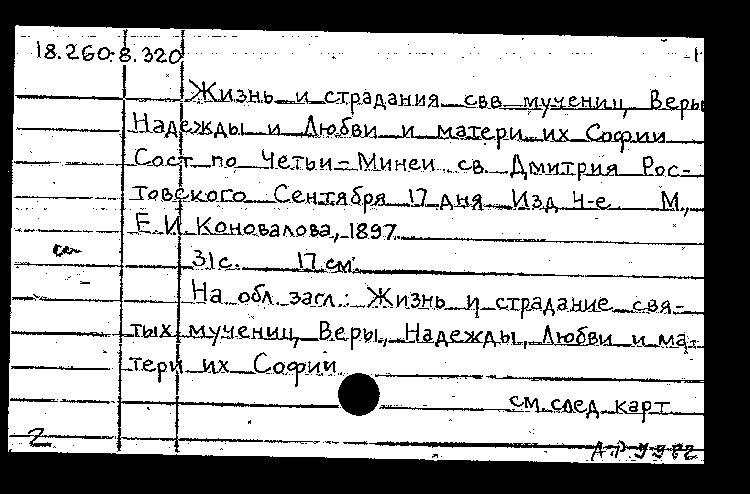 18.260.8.320
Жизнь и страдания свв мучениц, Веры
Надежды и Любви и матери их Софии
Сост по Четьи-Минеи св. Дмитрия Рос-
товского Сентября 17 дня Изд 4-е М.,
Е.И. Коновалова, 1897
31с. 17 см.
На обл. загл.: Жизнь и страдание свя-
тых мучениц, Веры, Надежды, Любви и ма-
тери их Софии
см. след. карт
2